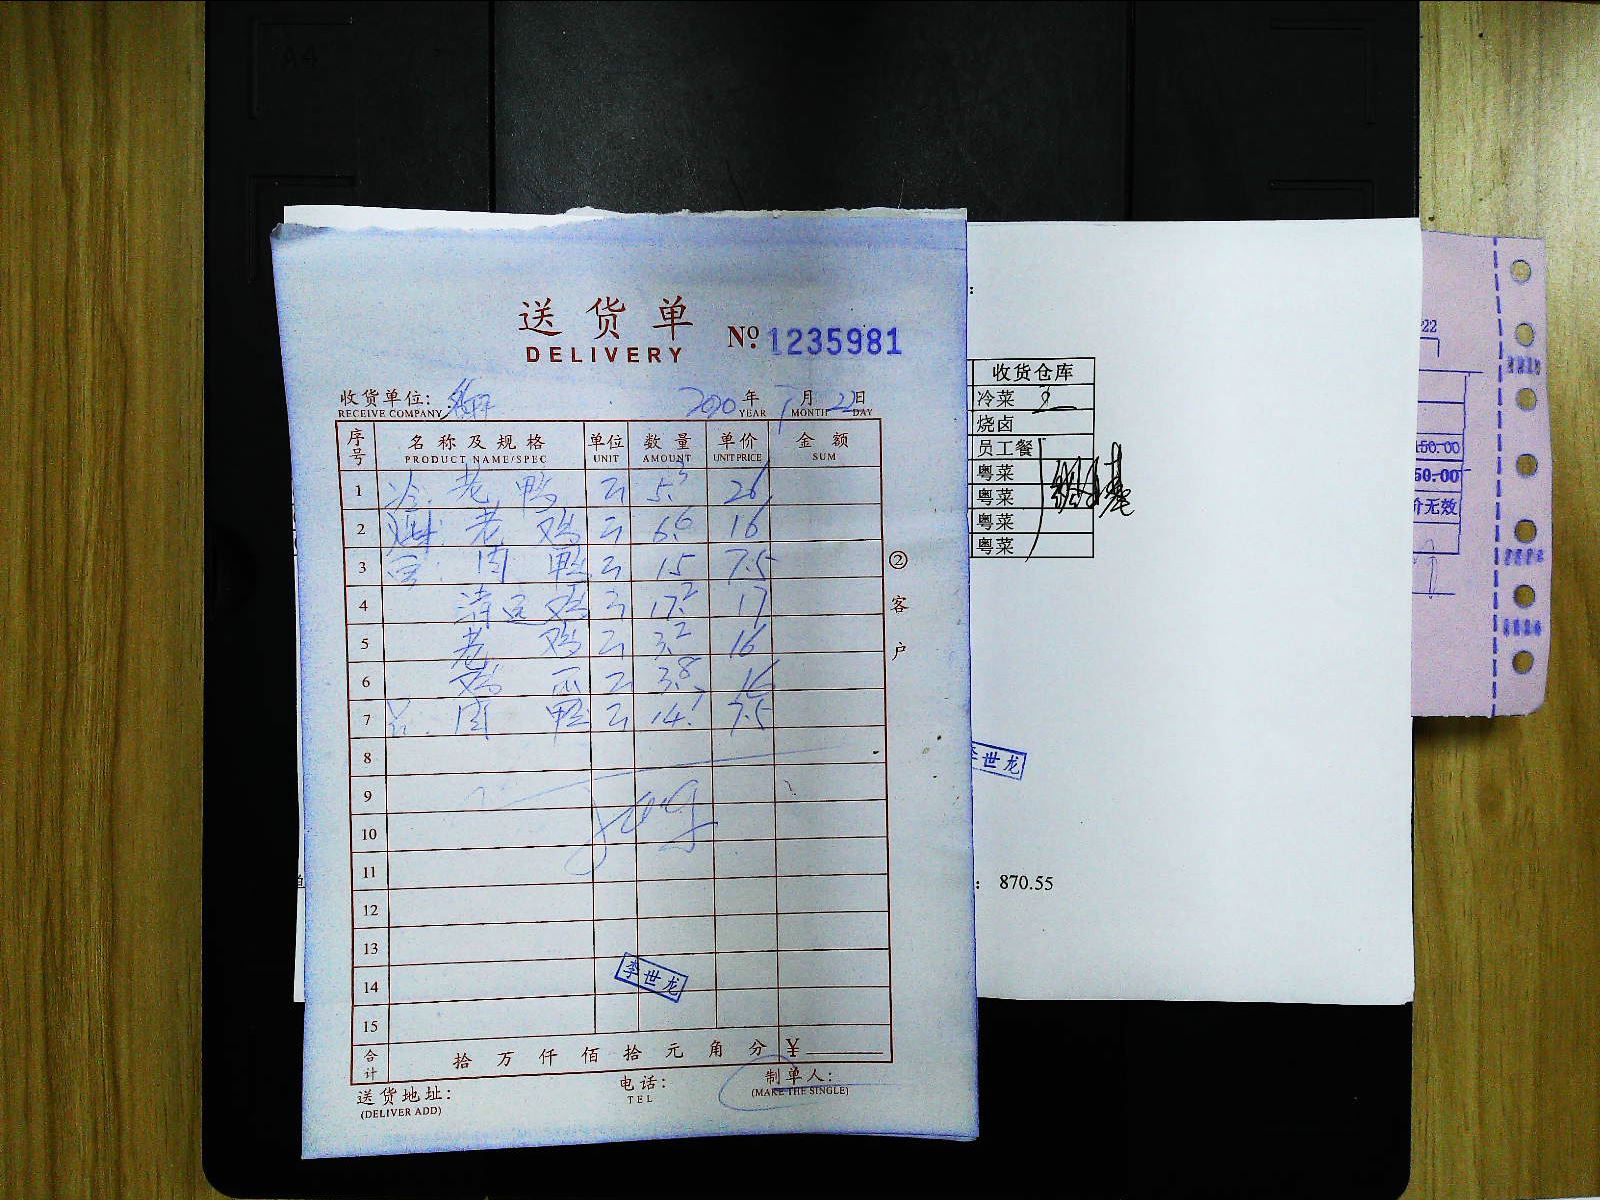 送货单
DELIVERY
№ 1235981
收货单位:
RECEIVE COMPANY
2020年7月22日
YEAR MONTH DAY
序号 名称及规格 单位 数量 单价 金额
PRODUCT NAME/SPEC UNIT AMOUNT UNIT PRICE SUM
1 冷. 老鸭 斤 5.3 26
2 老鸡 斤 6.6 16
3 肉鸭 斤 15 7.5
4 清远鸡 斤 17.2 17
5 老鸡 斤 3.2 16
6 鸡 斤 3.8 16
7 肉鸭 斤 14.1 7.5
8
9
10
11
12
13
14
15
李世龙
合计 拾万仟佰拾元角分 ¥
送货地址:
(DELIVER ADD)
电话:
TEL
制单人:
(MAKE THE SINGLE)
②客户
收货仓库
冷菜
烧卤
员工餐
粤菜
粤菜
粤菜
粤菜
李世龙
: 870.55
222
150.00
50.00
价无效